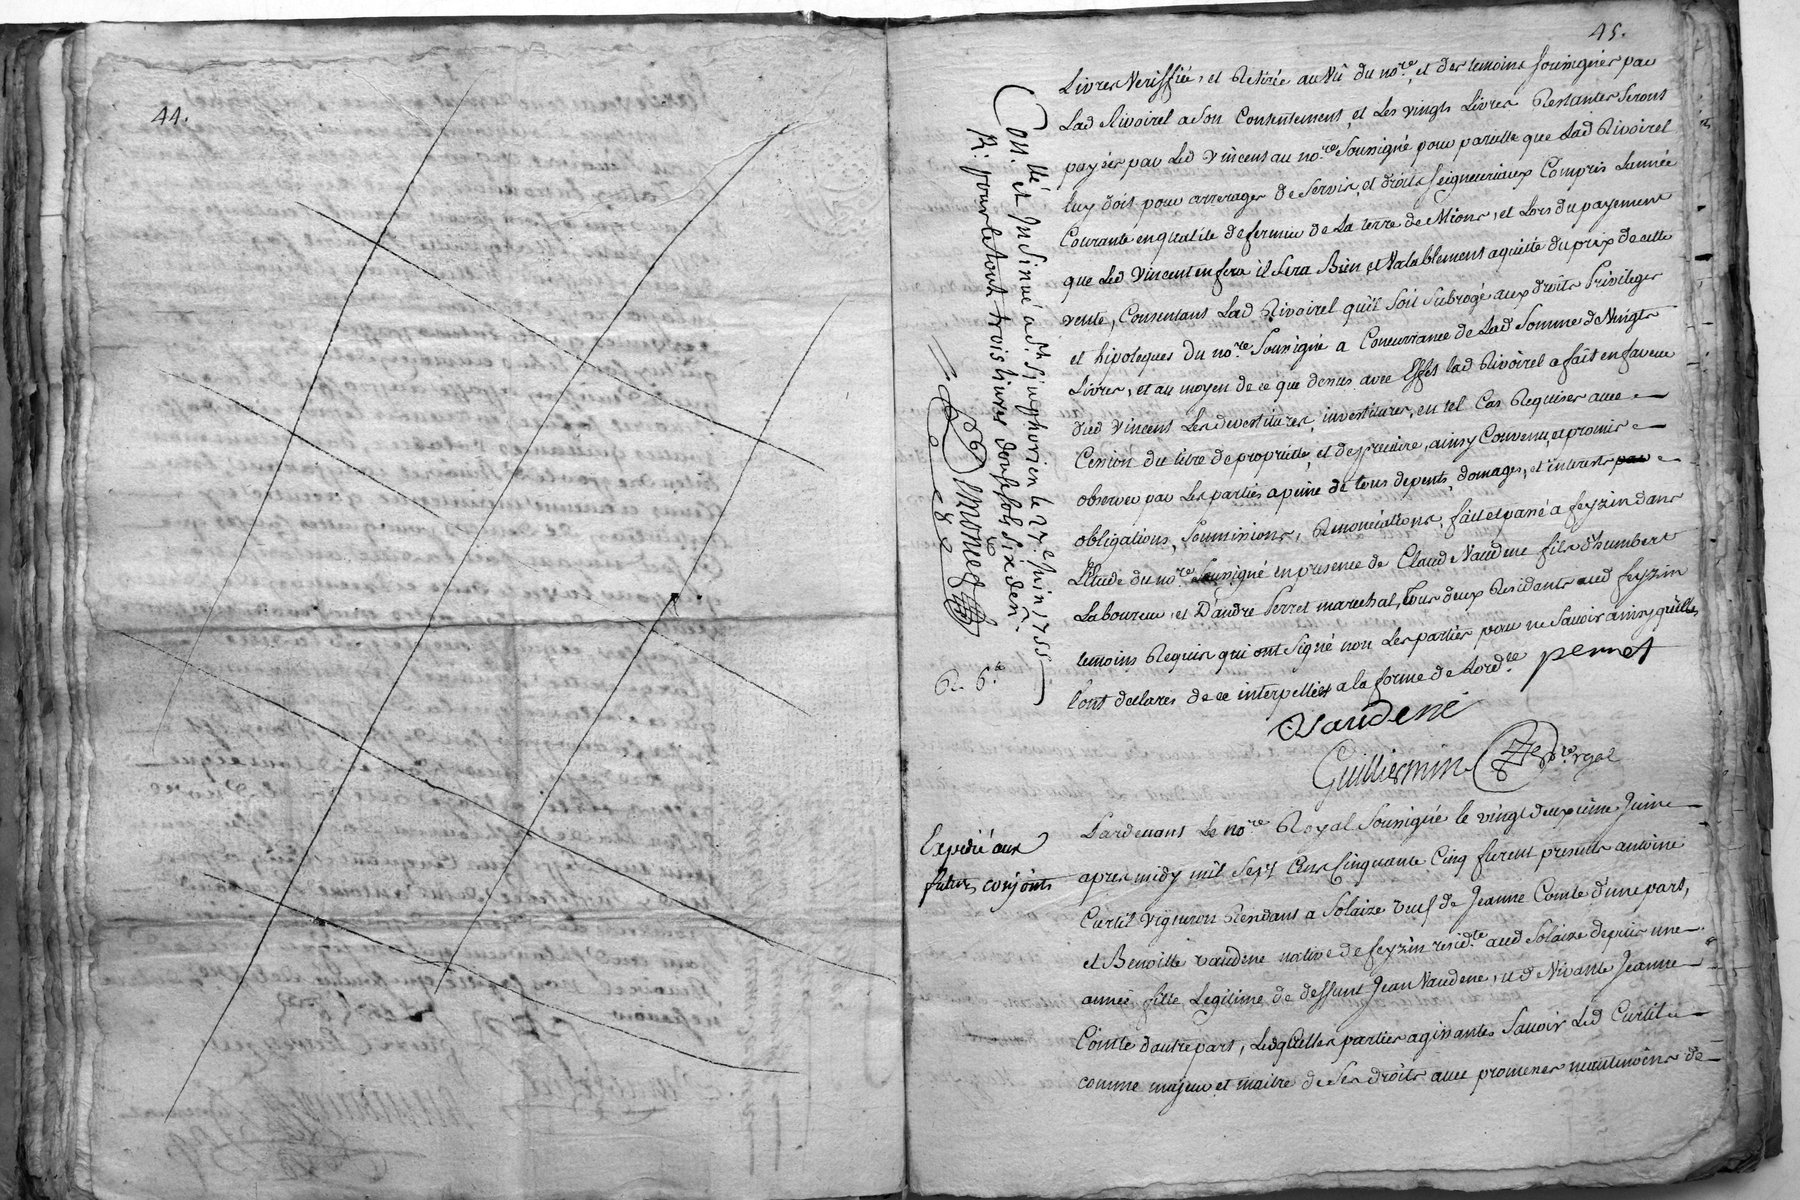 44.
45.
Livres veriffiée, et Retirée au vû du no.re, et des temoins soussignés par
Lad Rivoirel a son Consentement, et Les vingts Livres Restantes seront
payées par Led vincent au no.re soussigné pour pareille que Lad Rivoirel
luy doit pour arrerages de servis, et droits seigneuriaux Compris L'année
Courante en qualité de fermier de La terre de Mions, et Lors du payement
que Led vincent en fera il sera Bien et valablement aquitté du prix de cette
vente, Consentant Lad Rivoirel qu'il soit subrogé aux droits Privileges
et hipoteques du no.re soussigné a Concurrance de Lad somme de vingts
Livres, et au moyen de ce que dessus avec Effet lad Rivoirel a fait en faveur
dud vincent Les devestitures, investitures, en tel Cas Requises avec
Cession du titre de proprietté, et de precaire, ainsy Convenu, et promis
observer par Les parties a peine de tous depents, domages, et interests
obligations, soumissions, Renonciations, fait et passé a feyzin dans
L'Etude du no.re soussigné en presence de Claud Vaudene fils d'humbert
Laboureur, et D'andre Perret marechal, tous deux Residants aud feyzin
temoins Requis qui ont signé non Les parties pour ne savoir ainsy qu'elles
l'ont declarés de ce interpellées a la forme de Lord.ce
pernet
Vaudene
Guilliermin no.re royal
Con.llé et Insinué a St Singhorien le 27.e Juin 1755
R: pour le tout trois livres douse sols six den.
Simonet
Expedié aux
futurs conjoints
Pardevant Le no.re Royal soussigné le vingt deuxieme Juin
apres midy mil sept Cens Cinquante Cinq furent presents antoine
Curtil vigneron Residant a Solaize veuf de Jeanne Comte d'une part,
et Benoitte vaudene native de feyzin resid.te aud Solaize depuis une
année fille Legitime de deffunt Jean Vaudene, et de vivante Jeanne
Comte d'autre part, Lesquelles parties agissantes savoir Led Curtil
comme majeur et maitre de ses droits avec promesses neantmoins de